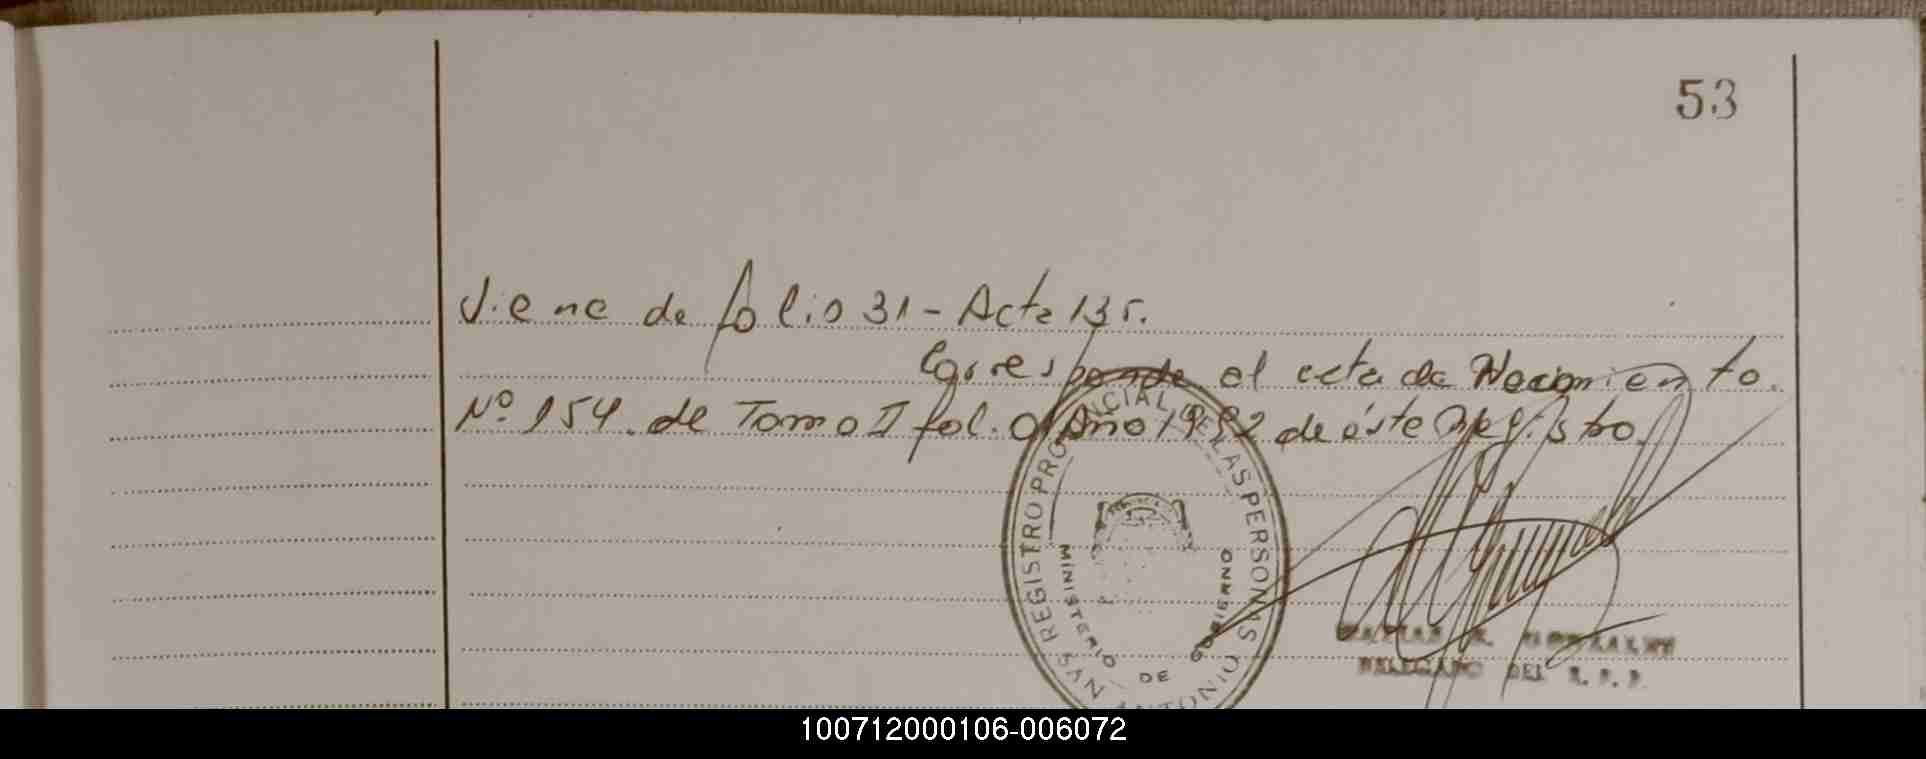 53
Viene de folio 31 - Acta 135.
Corresponde al acta de Nacimiento.
Nº 154. de Tomo II fol. Año 1982 de éste Registro.
REGISTRO PROVINCIAL DE LAS PERSONAS
MINISTERIO DE GOBIERNO
SAN ANTONIO
GONZALEZ
DELEGADO DEL R. P. P.
100712000106-006072